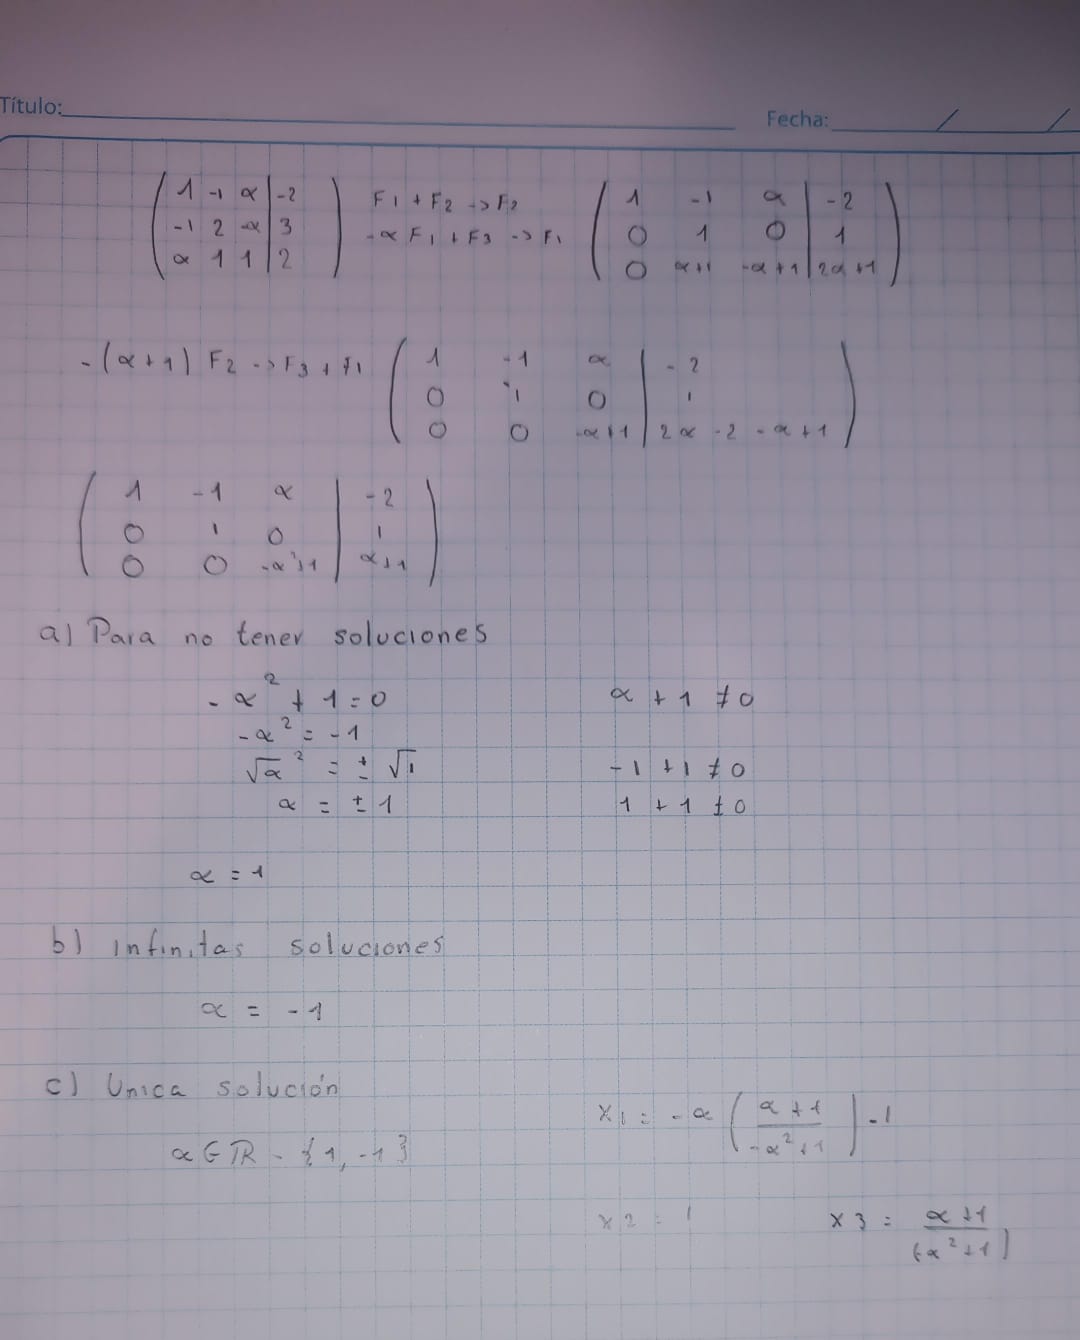 Título:
Fecha: / /
1 -1 α | -2
-1 2 -α | 3
α 1 1 | 2
F1 + F2 -> F2
-α F1 + F3 -> F1
1 -1 α | -2
0 1 0 | 1
0 α+1 -α+1 | 2α+1
-(α+1) F2 -> F3 + F1
1 -1 α | -2
0 1 0 | 1
0 0 -α+1 | 2α-2-α+1
1 -1 α | -2
0 1 0 | 1
0 0 -α²+1 | α+1
a) Para no tener soluciones
-α² + 1 = 0 α + 1 ≠ 0
-α² = -1
√α² = ± √1 -1 + 1 ≠ 0
α = ± 1 1 + 1 ≠ 0
α = 1
b) Infinitas soluciones
α = -1
c) Unica solución
x1 = -α ( (α+1) / (-α²+1) ) - 1
α ∈ R - {1, -1}
x2 = 1 x3 = (α+1) / (-α²+1)